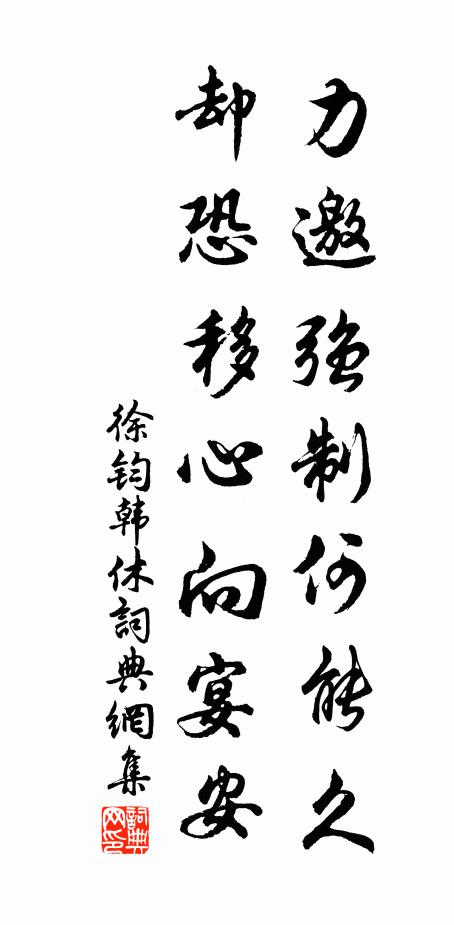 力邀强制何能久
却恐移心向宴安
徐鈞韩休詞典網集
詞典网印